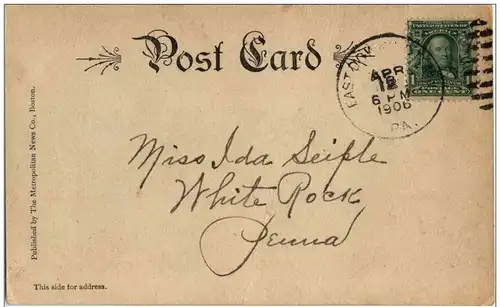 Post Card
UNITED STATES OF AMERICA
APR
12
6 PM
1906
PA.
ONE CENT
Miss Ida Seiple
White Rock
Penna
Published by The Metropolitan News Co., Boston.
This side for address.